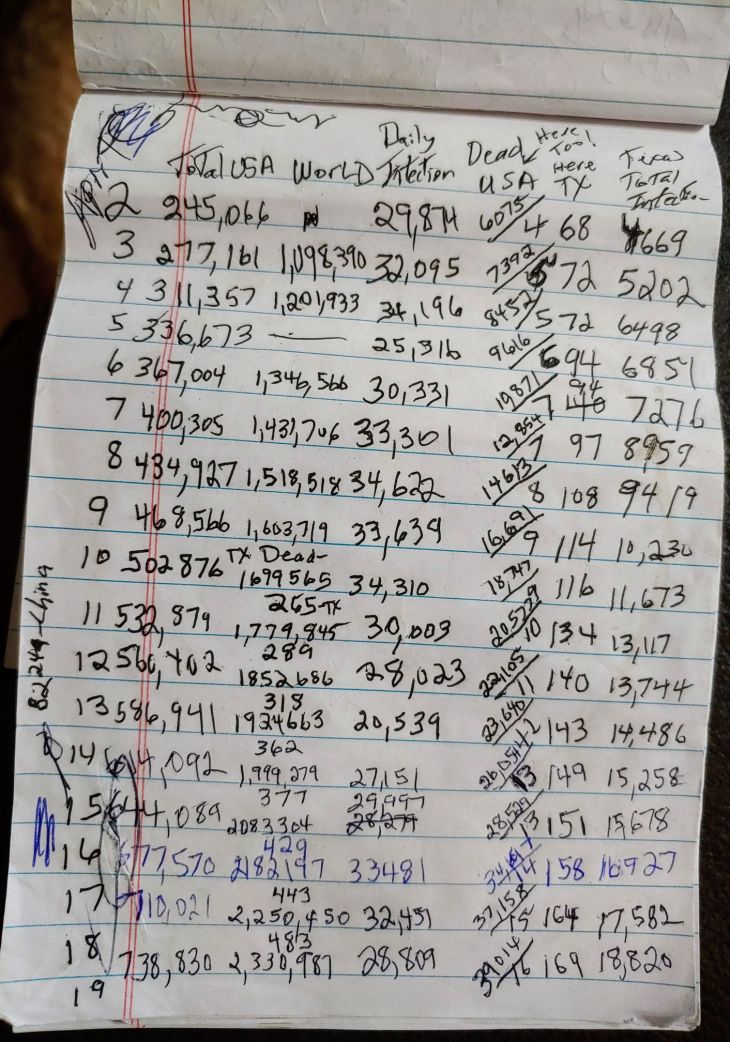 Daily Dead Here Too!
Total USA World Infection USA Here TX Total
April 2 245,066 29,874 6075/4 68 4669
3 277,161 1,098,390 32,095 7392/5 72 5202
4 311,357 1,201,933 34,196 8452/5 72 6498
5 336,673 — 25,316 9616/6 94 6851
6 367,004 1,346,566 30,331 10,871/7 94 7276
7 400,305 1,431,706 33,301 12,854/7 97 8959
8 434,927 1,518,518 34,622 14613/8 108 9419
9 468,566 1,603,719 33,639 16,691/9 114 10,230
TX Dead-
10 502876 1699565 34,310 18,747/9 116 11,673
265-TX
11 532,879 1,779,845 30,003 20577/10 134 13,117
289
12 560,402 1852686 28,023 22,105/11 140 13,744
318
13 586,941 1924663 20,539 23,640/12 143 14,486
82249-China
362
14 614,092 1,999,279 27,151 26,054/13 149 15,258
377 29,997
15 644,089 2083304 28,279 28,529/13 151 15,678
429
16 677,570 2182197 33481 /14 158 16927
443
17 710,021 2,250,450 32,451 37,158/15 164 17,582
483
18 738,830 2,330,987 28,809 39014/16 169 18,820
19